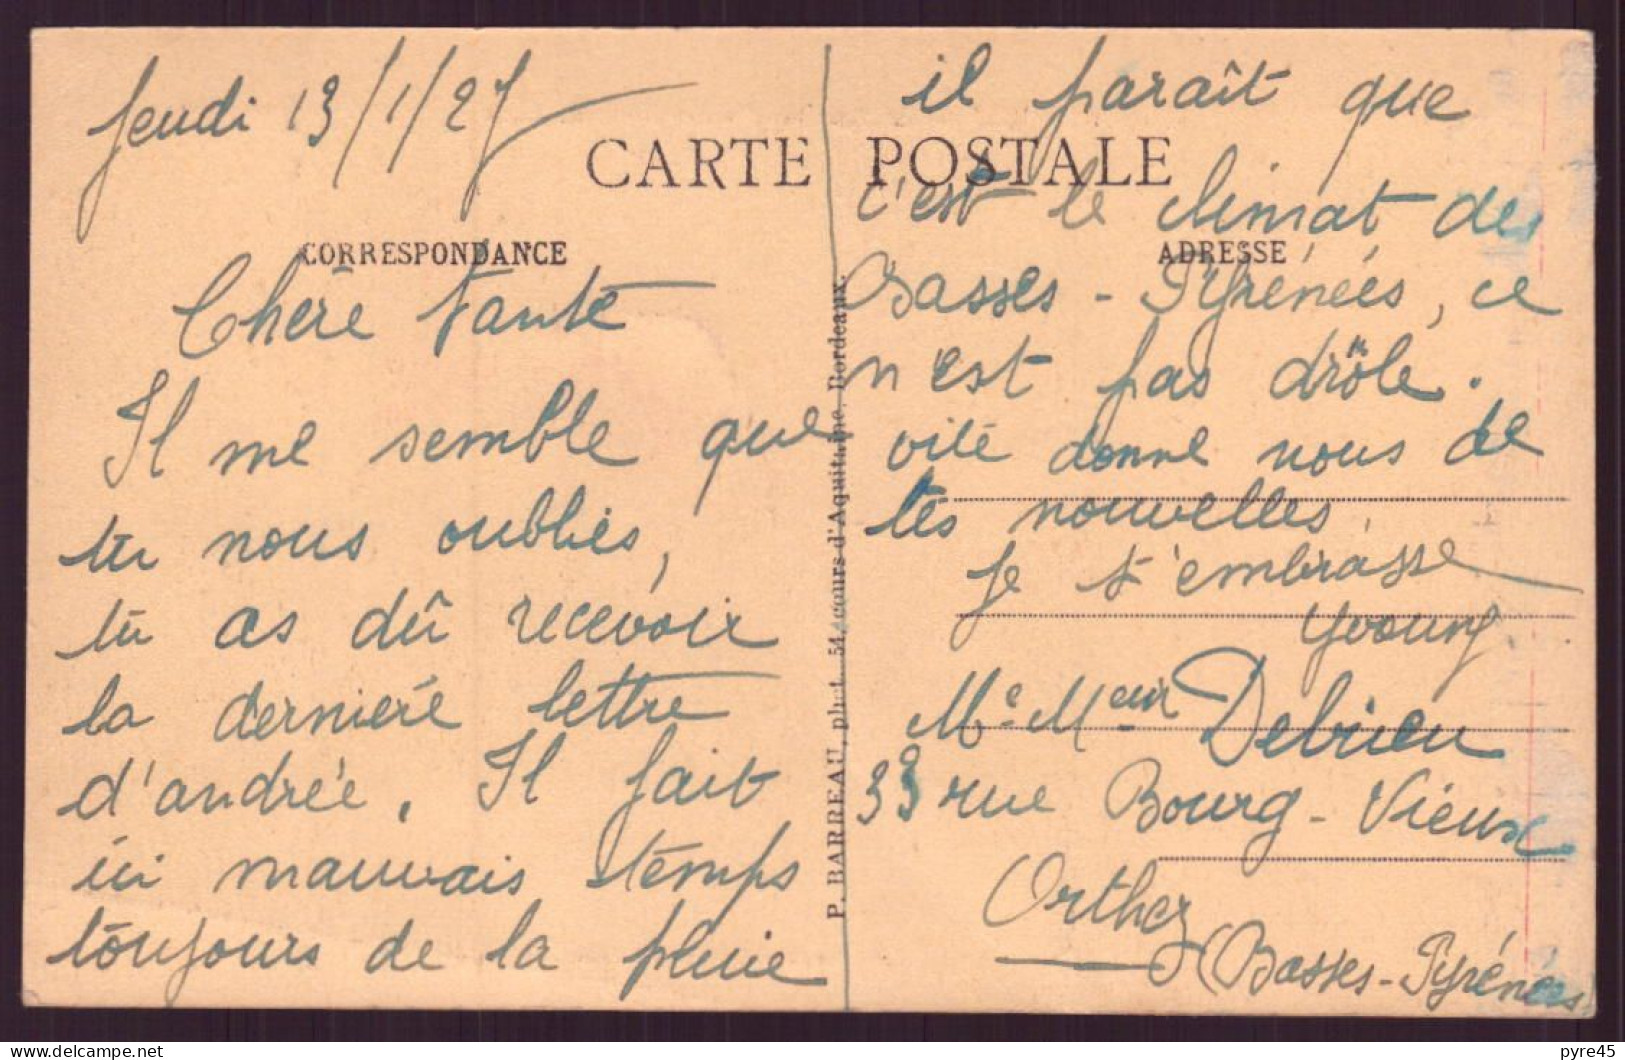 Jeudi 13/1/27
CARTE POSTALE
CORRESPONDANCE
Chère Tante
Il me semble que
tu nous oublies,
tu as dû recevoir
la dernière lettre
d'andrée. Il fait
ici mauvais temps
toujours de la pluie
P. BARREAU, phot. 54, cours d'Aquitaine, Bordeaux.
il paraît que
c'est le climat des
ADRESSE
Basses-Pyrénées, ce
n'est pas drôle.
vite donne nous de
tes nouvelles,
Je t'embrasse
Me Meur Debrieu
33 rue Bourg-Vieux
Orthez
(Basses-Pyrénées
pyre45
delcampe.net